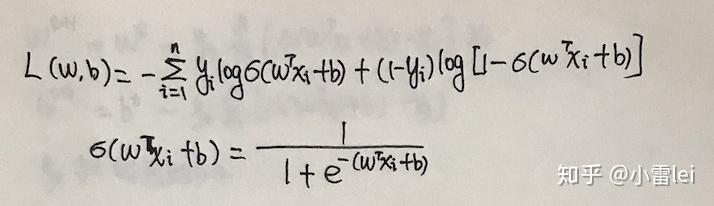 L(w,b)= -∑_{i=1}^{n} y_i log σ(w^T x_i+b) + (1-y_i) log [1-σ(w^T x_i+b)]
σ(w^T x_i+b) = \frac{1}{1+e^{-(w^T x_i+b)}}
知乎 @小雷lei